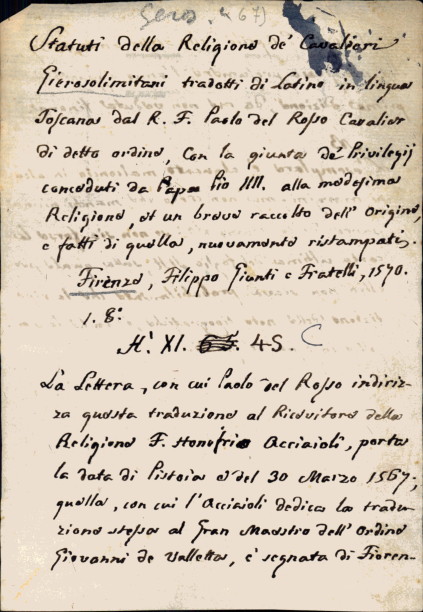 Gero. (467)
Statuti della Religione de' Cavalieri
Gierosolimitani tradotti di Latino in lingua
Toscana dal R. F. Paolo del Rosso Cavalier
di detto ordine, Con la giunta de' Privilegij
conceduti da Papa Pio IIII. alla medesima
Religione, et un breve raccolto dell' Origine,
e fatti di quella, nuovamente ristampati.
Firenze, Filippo Giunti e Fratelli, 1570.
1. 8.º
H. XI. 45. C
La Lettera, con cui Paolo del Rosso indiriz-
za questa traduzione al Ricevitore della
Religione F. Honofrio Acciaioli, porta
la data di Pistoia e' del 30 Marzo 1567;
quella, con cui l'Acciaioli dedica la tradu-
zione stessa al Gran Maestro dell' Ordine
Giovanni de Valletta, è segnata di Fioren-